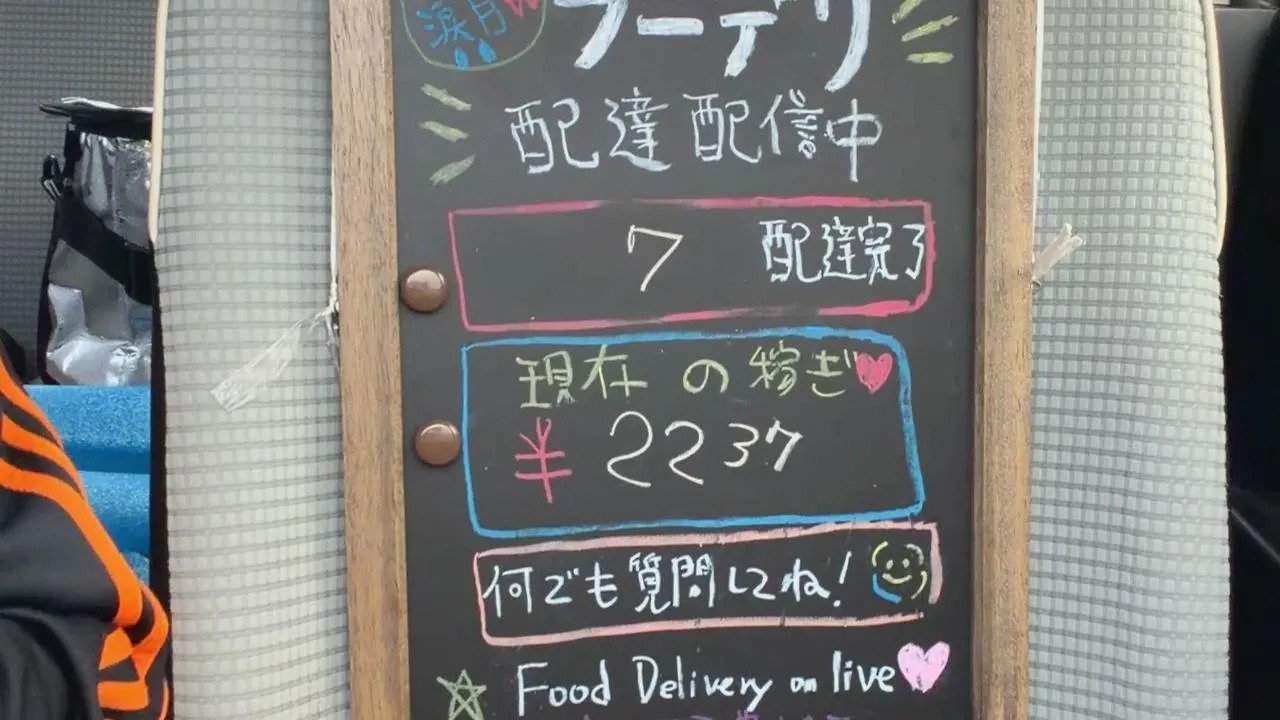 涙月
フーデリ
配達配信中
7 配達完了
現在の稼ぎ
¥2237
何でも質問してね!
Food Delivery on live